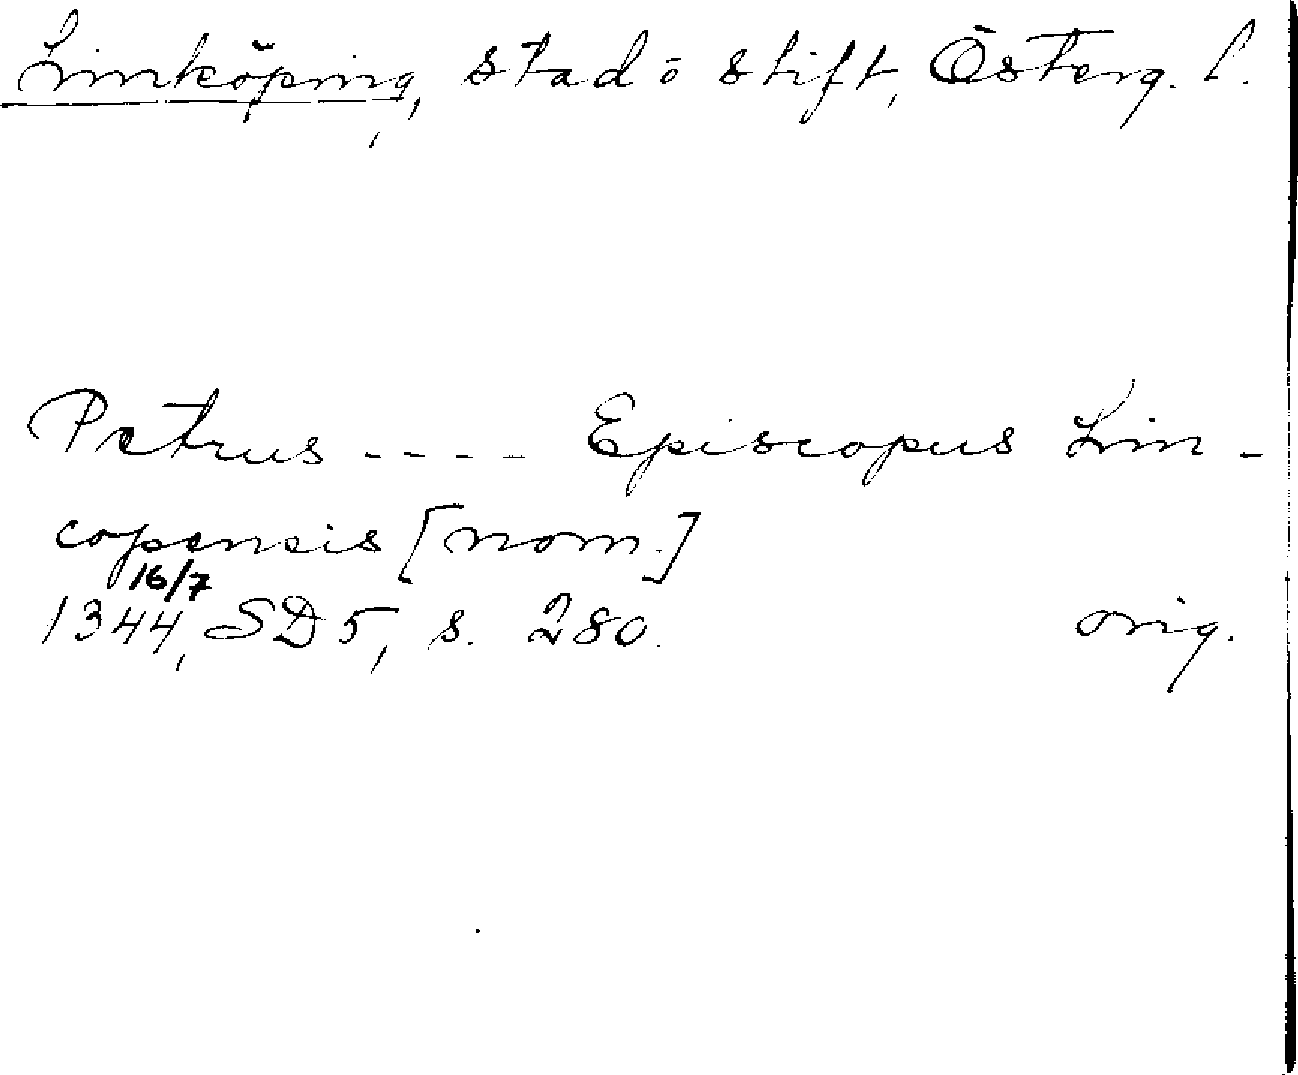 Linköping, stad o stift, Österg. l.
Petrus ---- Episcopus Lin-
copensis [nom.]
16/7
1344, SD 5, s. 280. orig.